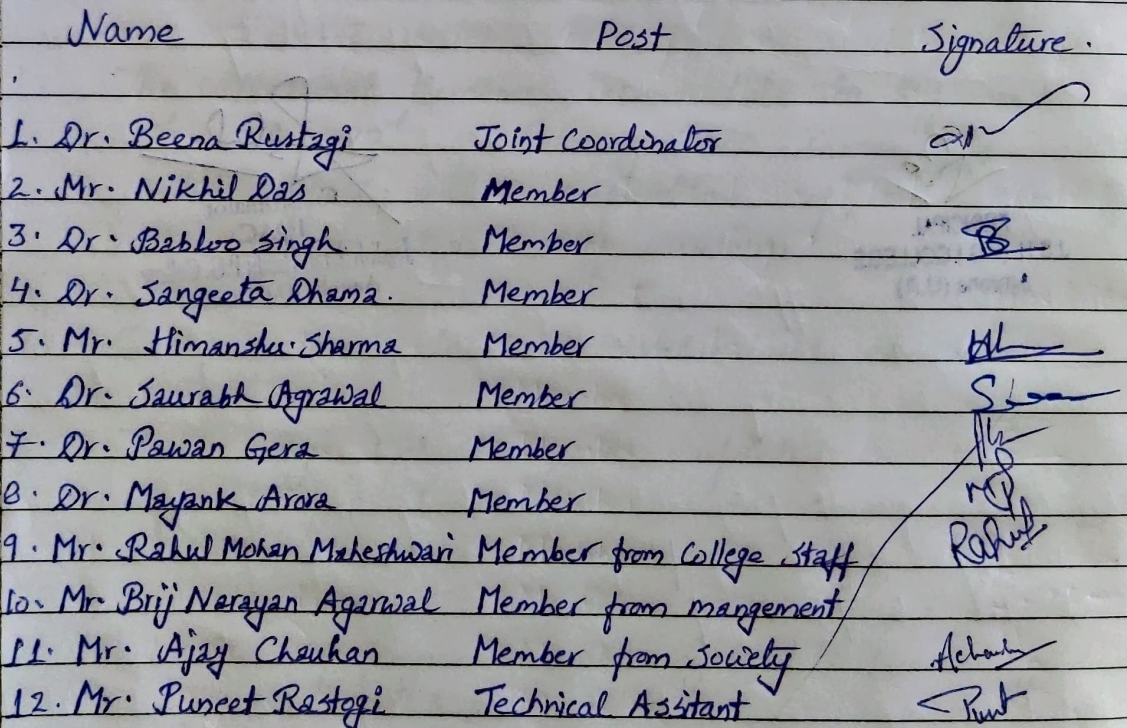 Name Post Signature.
1. Dr. Beena Rustagi Joint Coordinator
2. Mr. Nikhil Das Member
3. Dr. Babloo Singh Member
4. Dr. Sangeeta Dhama. Member
5. Mr. Himanshu Sharma Member
6. Dr. Saurabh Agrawal Member
7. Dr. Pawan Gera Member
8. Dr. Mayank Arora Member
9. Mr. Rahul Mohan Maheshwari Member from College staff Rahul
10. Mr. Brij Narayan Agarwal Member from mangement
11. Mr. Ajay Chauhan Member from Society
12. Mr. Puneet Rastogi Technical Assitant